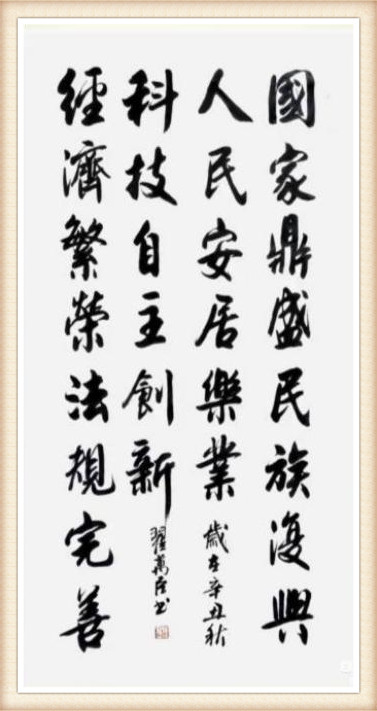 國家鼎盛民族復興
人民安居樂業
歲在辛丑秋
科技自主創新
翟萬书
經濟繁榮法規完善